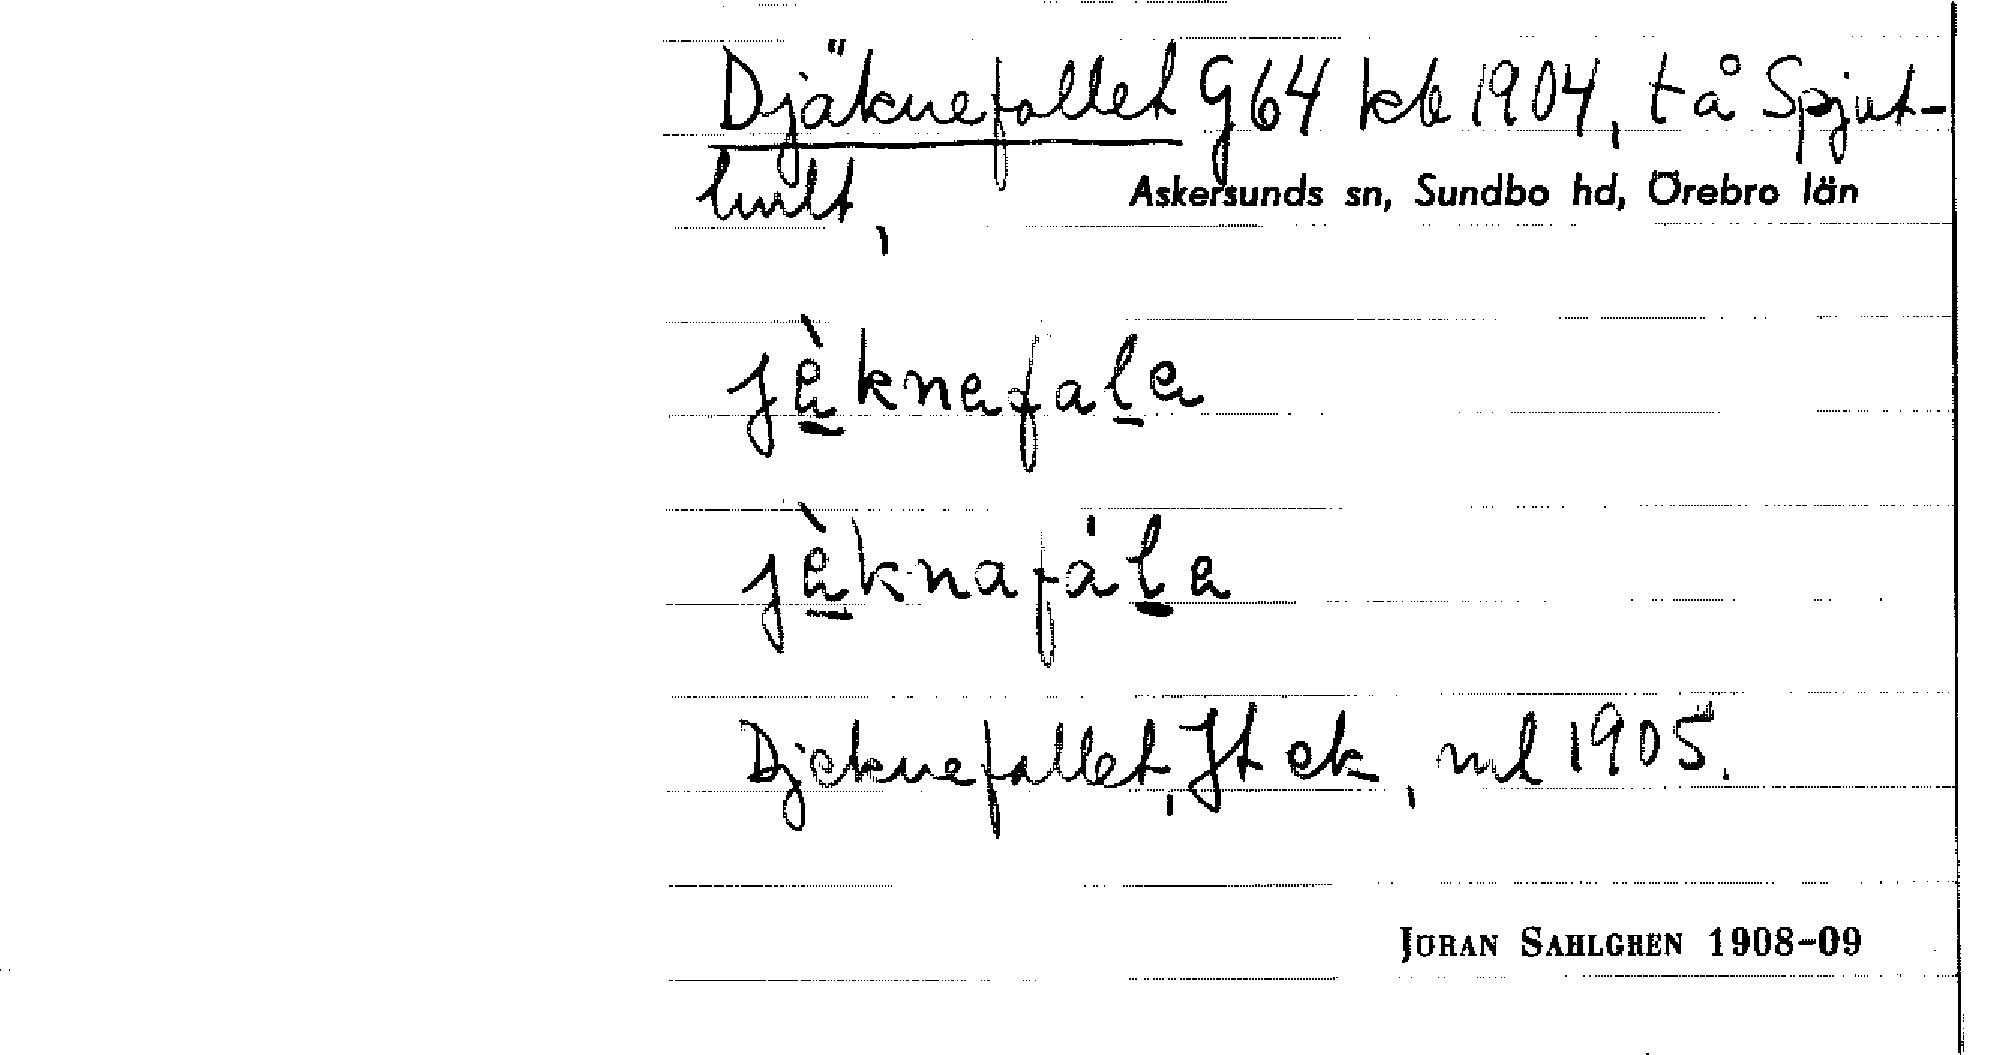 Djäknefallet G64 kb 1904, t å Spjut-
hult,
Askersunds sn, Sundbo hd, Örebro län
jèknefale
jèknafále
Djeknefallet, Jt ek, ml 1905.
JÖRAN SAHLGREN 1908-09